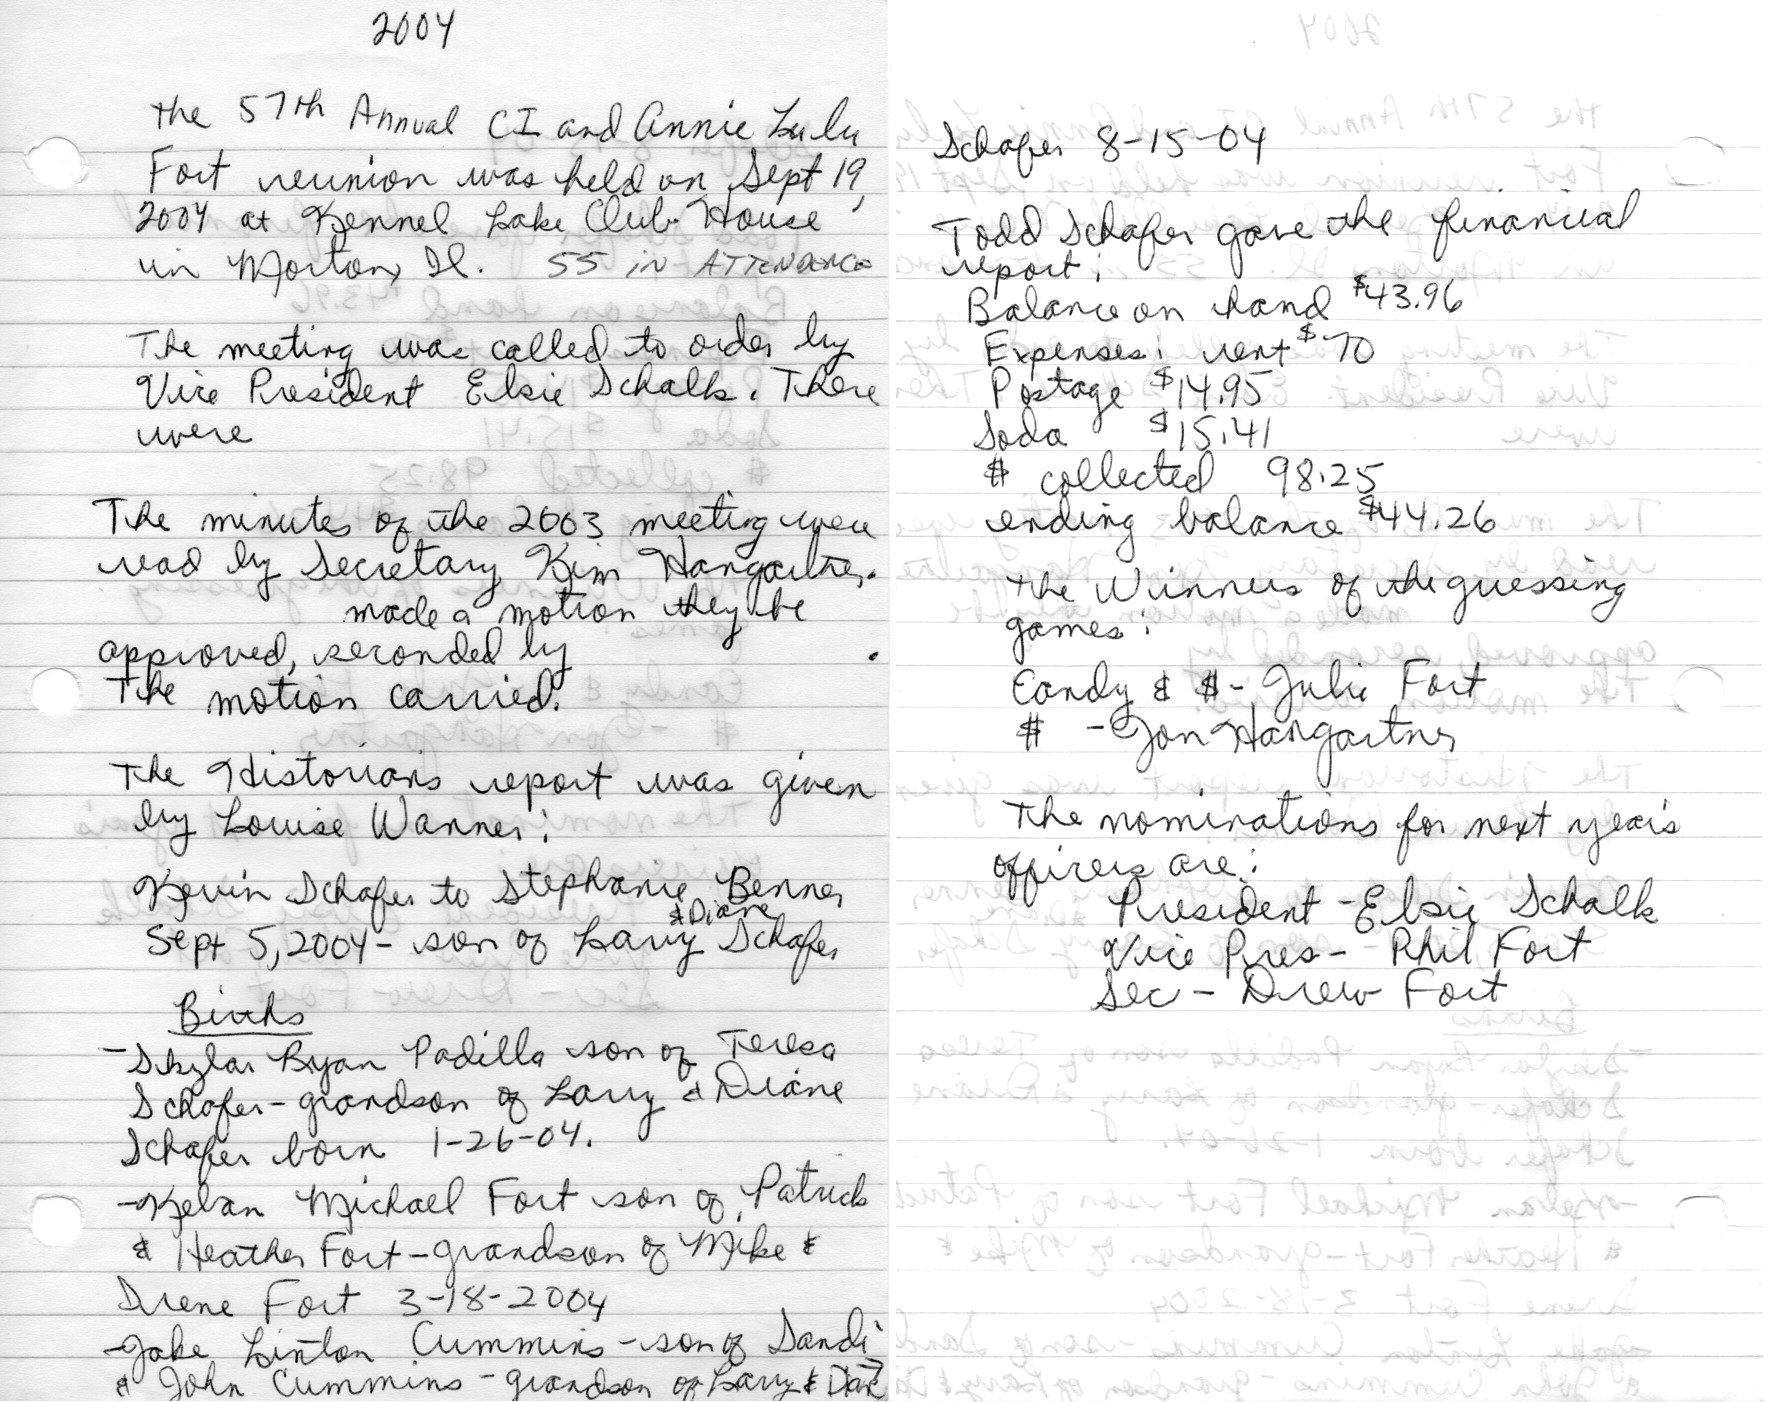 2004
The 57th Annual CI and Annie Lulu
Fort reunion was held on Sept 19,
2004 at Kennel Lake Club House
in Morton, Il. 55 IN ATTENDENCE
The meeting was called to order by
Vice President Elsie Schalk. There
were
The minutes of the 2003 meeting were
read by Secretary Kim Hangartner.
made a motion they be
approved, seconded by .
The motion carried.
The Historians report was given
by Louise Wanner:
Kevin Schafer to Stephanie Benner
& Diane
Sept 5, 2004 - son of Larry Schafer
Births
- Skylar Ryan Padilla son of Teresa
Schafer - grandson of Larry & Diane
Schafer born 1-26-04.
- Kelan Michael Fort son of Patrick
& Heather Fort - grandson of Mike &
Irene Fort 3-18-2004
- Jake Linton Cummins - son of Sandi
& John Cummins - grandson of Larry & Diane
Schafer 8-15-04
Todd Schafer gave the financial
report:
Balance on hand $43.96
Expenses: rent $70
Postage $14.95
Soda $15.41
$ collected 98.25
ending balance $44.26
The Winners of the guessing
games:
Candy & $ - Julie Fort
$ - Jon Hangartner
The nominations for next year's
officers are:
President - Elsie Schalk
Vice Pres - Phil Fort
Sec - Drew Fort